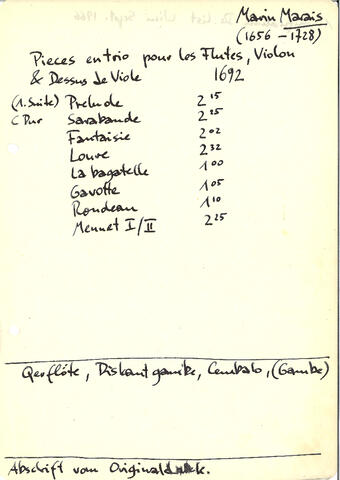 Marin Marais
(1656 – 1728)
Pieces en trio pour les Flutes, Violon
& Dessus de Viole 1692
(1. Suite) Prelude 2 15
C Dur Sarabande 2 25
Fantaisie 2 02
Loure 2 32
La bagatelle 1 00
Gavotte 1 05
Rondeau 1 10
Menuet I/II 2 25
Qerflöte, Diskantgambe, Cembalo, (Gambe)
Abschrift vom Originaldruck.